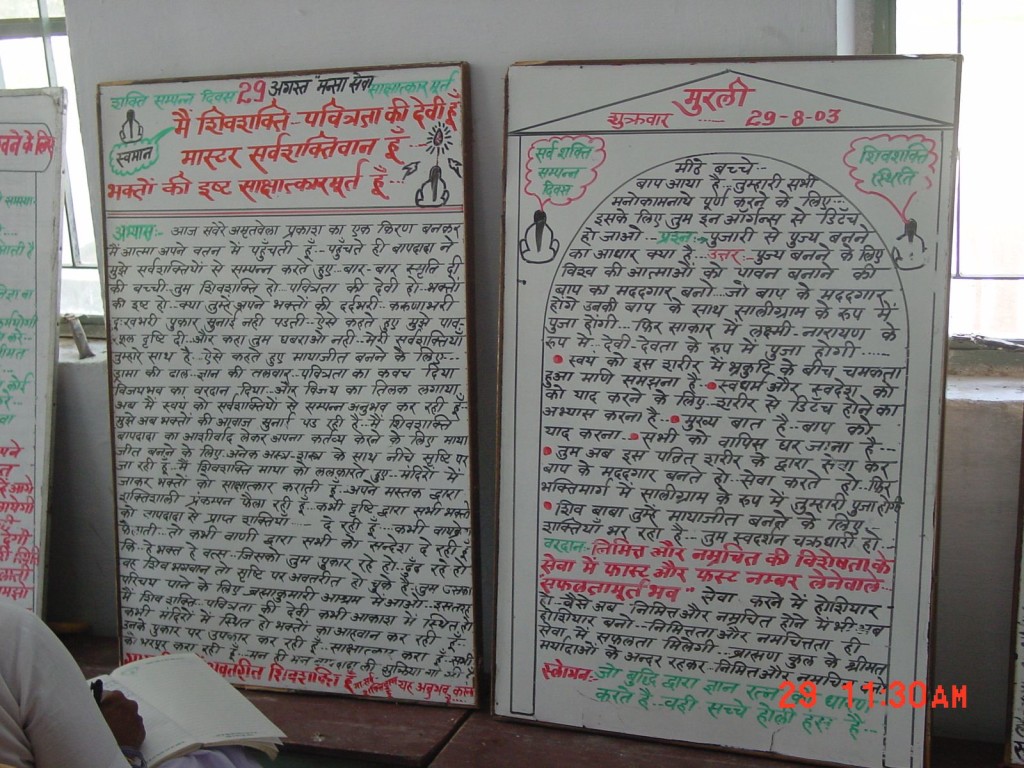 शक्ति सम्पन्न दिवस 29 अगस्त "मन्सा सेवा
साक्षात्कार मूर्त
मैं शिवशक्ति पवित्रता की देवी हूँ
स्वमान
मास्टर सर्वशक्तिवान हूँ
भक्तों की इष्ट साक्षात्कारमूर्त हूँ
अभ्यास:- आज सवेरे अमृतवेला प्रकाश का एक किरण बनकर
मैं आत्मा अपने वतन में पहुँचती हूँ - पहुँचते ही बापदादा ने
मुझे सर्वशक्तियों से सम्पन्न करते हुए - बार-बार स्मृति दी
की बच्ची तुम शिवशक्ति हो - पवित्रता की देवी हो - भक्तों
की इष्ट हो - क्या तुम्हें अपने भक्तों की दर्दभरी - करूणाभरी
दुःखभरी पुकार सुनाई नही पडती - ऐसे कहते हुए मुझे पावर-
फुल दृष्टि दी - और कहा तुम घबराओ नही - मेरी सर्वशक्तियाँ
तुम्हारे साथ है - ऐसे कहते हुए मायाजीत बनने के लिए -
ड्रामा की ढाल - ज्ञान की तलवार - पवित्रता का कवच दिया
विजयीभव का वरदान दिया - और विजय का तिलक लगाया
अब मैं स्वयं को सर्वशक्तियों से सम्पन्न अनुभव कर रही हूँ
मुझे अब भक्तों की आवाज सुनाई पड रही है - मैं शिवशक्ति
बापदादा का आशीर्वाद लेकर अपना कर्तव्य करने के लिए माया
जीत बनने के लिए अनेक अस्त्र-शस्त्र के साथ नीचे सृष्टि पर
जा रही हूँ - मैं शिवशक्ति माया को ललकारते हुए - मंदिरों में
जाकर भक्तों को साक्षात्कार कराती हूँ - अपने मस्तक द्वारा
शक्तिशाली प्रकम्पन फैला रही हूँ - कभी दृष्टि द्वारा सभी भक्तों
को बापदादा से प्राप्त शक्तियाँ दे रही हूँ - कभी
फैलाती - तो कभी वाणी द्वारा सभी को सन्देश दे रही हूँ
कि हे भक्त हे वत्स - जिसको तुम पुकार रहे हो - ढूँढ रहे हो
वह शिव भगवान तो सृष्टि पर अवतरीत हो चुके है - तुम उसका
परिचय पाने के लिए ब्रह्माकुमारी आश्रम में आओ - इसतरह
मैं शिवशक्ति - पवित्रता की देवी कभी आकाश में स्थित हो
कभी मंदिरों में स्थित हो भक्तों का आह्वान कर रही हूँ
उनके पुकार पर उपकार कर रही हूँ - साक्षात्कार करा रही हूँ - सभी
को भरपूर करा रही हूँ - मन ही मन बापदादा की
अवतरीत शिवशक्ति हूँ यह अनुभव करना
मुरली
शुक्रवार 29-8-03
सर्व शक्ति
सम्पन्न
दिवस
शिवशक्ति
स्थिति
मीठे बच्चे
बाप आया है - तुम्हारी सभी
मनोकामनाये पूर्ण करने के लिए
इसके लिए तुम इन ऑर्गन्स से डिटैच
हो जाओ - प्रश्न:- पुजारी से पूज्य बनने
का आधार क्या है - उत्तर:- पूज्य बनने के लिए
विश्व की आत्माओं को पावन बनाने की
बाप का मददगार बनो - जो बाप के मददगार
होंगे उनकी बाप के साथ सालीग्राम के रूप में
पूजा होगी - फिर साकार में लक्ष्मी-नारायण के
रूप में - देवी-देवता के रूप में पूजा होगी
स्वयं को इस शरीर में भ्रकुटि के बीच चमकता
हुआ मणि समझना है - स्वधर्म और स्वदेश को
को याद करने के लिए - शरीर से डिटैच होने का
अभ्यास करना है - मुख्य बात है - बाप को
याद करना - सभी को वापिस घर जाना है
तुम अब इस पतित शरीर के द्वारा सेवा कर
बाप के मददगार बनते हो - सेवा करते हो - फिर
भक्तिमार्ग में सालीग्राम के रूप में तुम्हारी पूजा होगी
शिव बाबा तुम्हें मायाजीत बनने के लिए
शक्तियाँ भर रहा है - तुम स्वदर्शन चक्रधारी हो
वरदान:- निमित्त और नम्रचित की विशेषता के
सेवा में फास्ट और फर्स्ट नम्बर लेनेवाले
सफलतामूर्त भव" सेवा करने में होशियार
हो - वैसे अब निमित्त और नम्रचित होने में भी अब
होशियार बनो - निमित्तता और नम्रचित्तता ही
सेवा में सफलता मिलेगी - ब्राह्मण कुल के श्रीमत
मर्यादाओं के अन्दर रहकर निमित्त और नम्रचित
स्लोगन:- जो बुद्धि द्वारा ज्ञान रत्न धारण
करते है - वही सच्चे होली हंस है
29 11:30AM